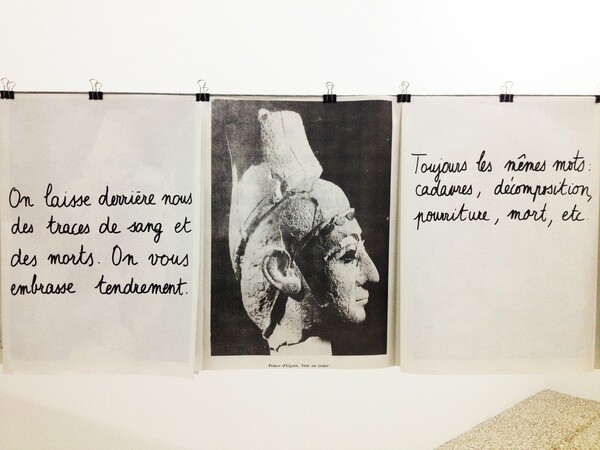 On laisse derrière nous
des traces de sang et
des morts. On vous
embrasse tendrement.
Prince d'Ugarit. Tête en ivoire
Toujours les mêmes mots:
cadavres, décomposition,
pourriture, mort, etc.